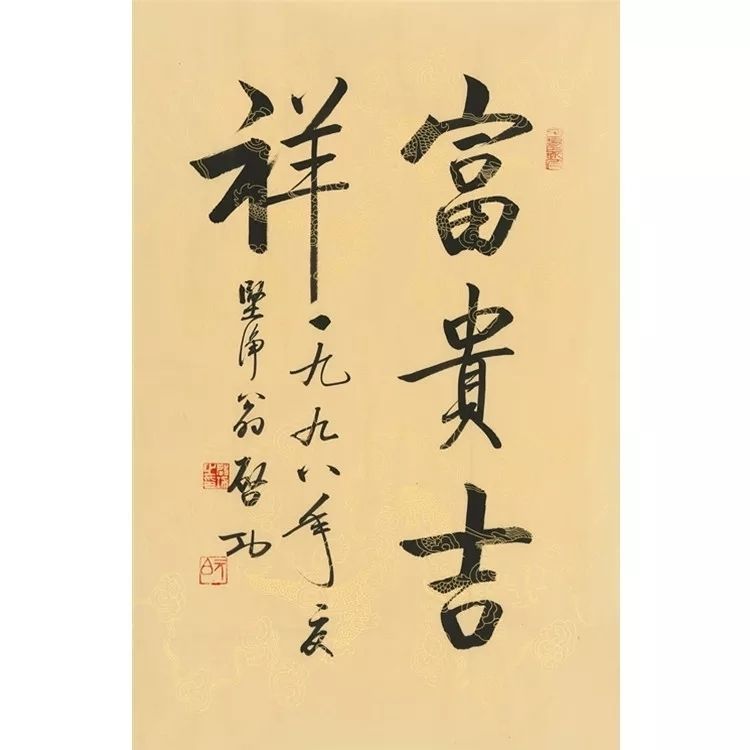 富貴吉
祥
一九九八年夏
堅浄翁啓功
元白